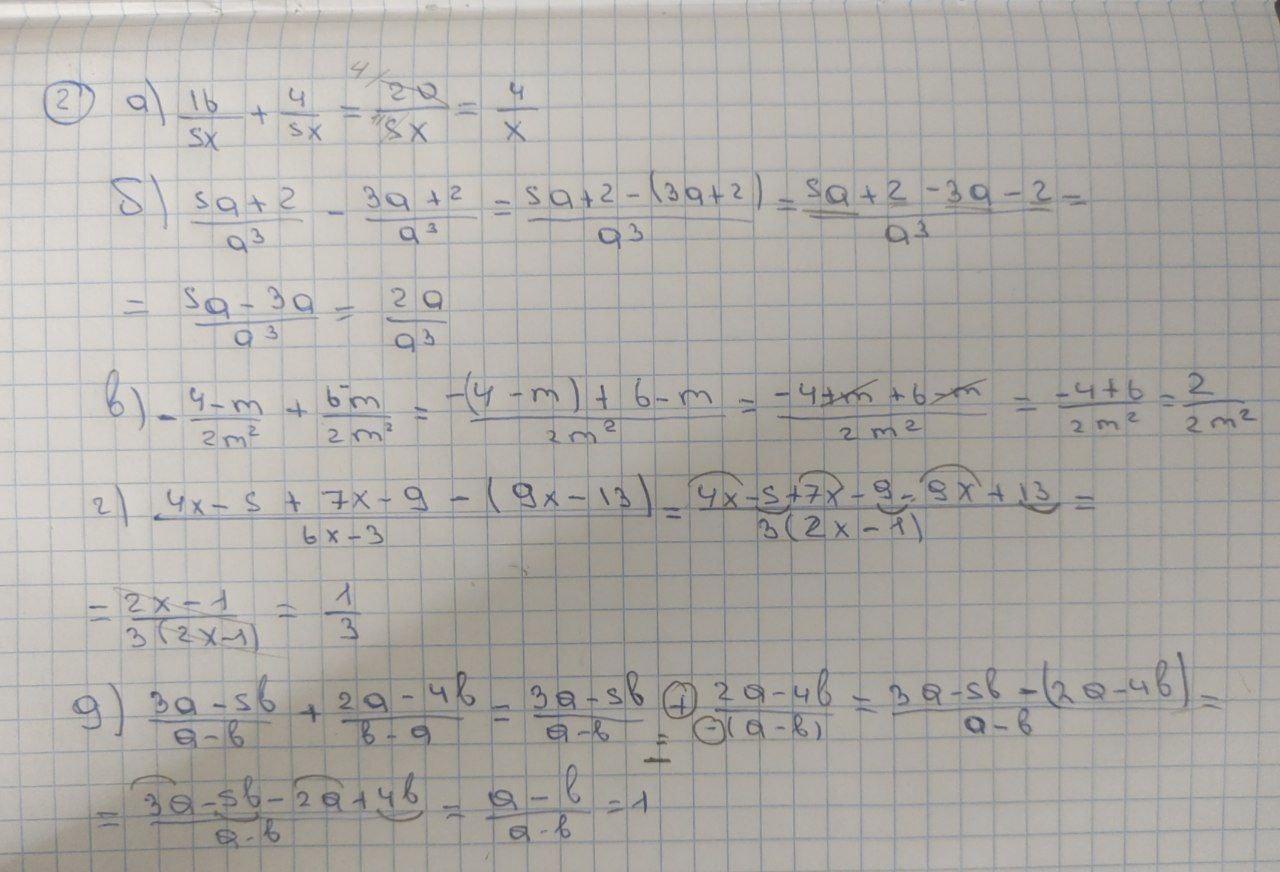 2 а) 16/5x + 4/5x = 20/5x = 4/x
б) (5a+2)/a³ - (3a+2)/a³ = (5a+2-(3a+2))/a³ = (5a+2-3a-2)/a³ =
= (5a-3a)/a³ = 2a/a³
в) - (4-m)/2m² + (6-m)/2m² = (-(4-m)+6-m)/2m² = (-4+m+6-m)/2m² = (-4+6)/2m² = 2/2m²
г) (4x-5+7x-9-(9x-13))/(6x-3) = (4x-5+7x-9-9x+13)/(3(2x-1)) =
= (2x-1)/(3(2x-1)) = 1/3
д) (3a-5b)/(a-b) + (2a-4b)/(b-a) = (3a-5b)/(a-b) + (2a-4b)/(-(a-b)) = (3a-5b-(2a-4b))/(a-b) =
= (3a-5b-2a+4b)/(a-b) = (a-b)/(a-b) = 1